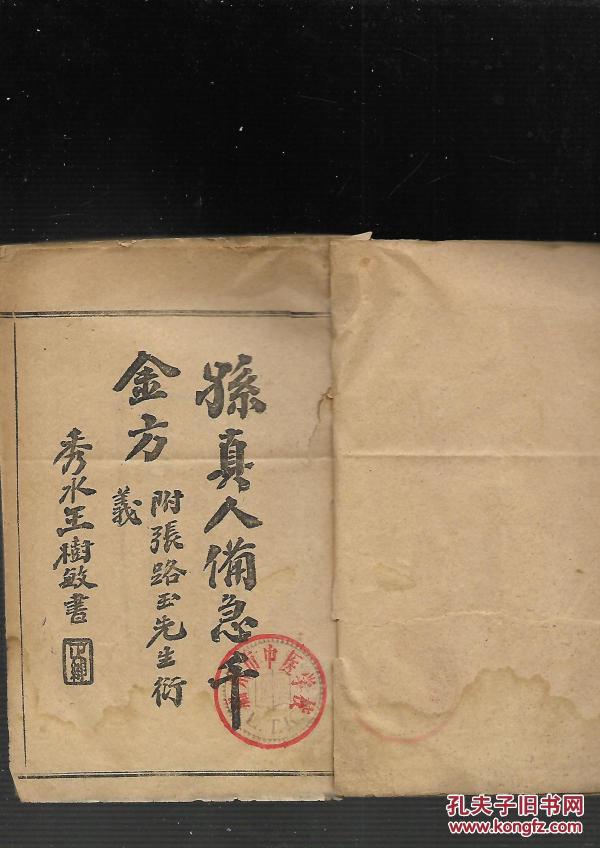 孫真人備急千
金方
附張路玉先生衍
義
秀水王樹敏書
市中医学校
孔夫子旧书网
www.kongfz.com